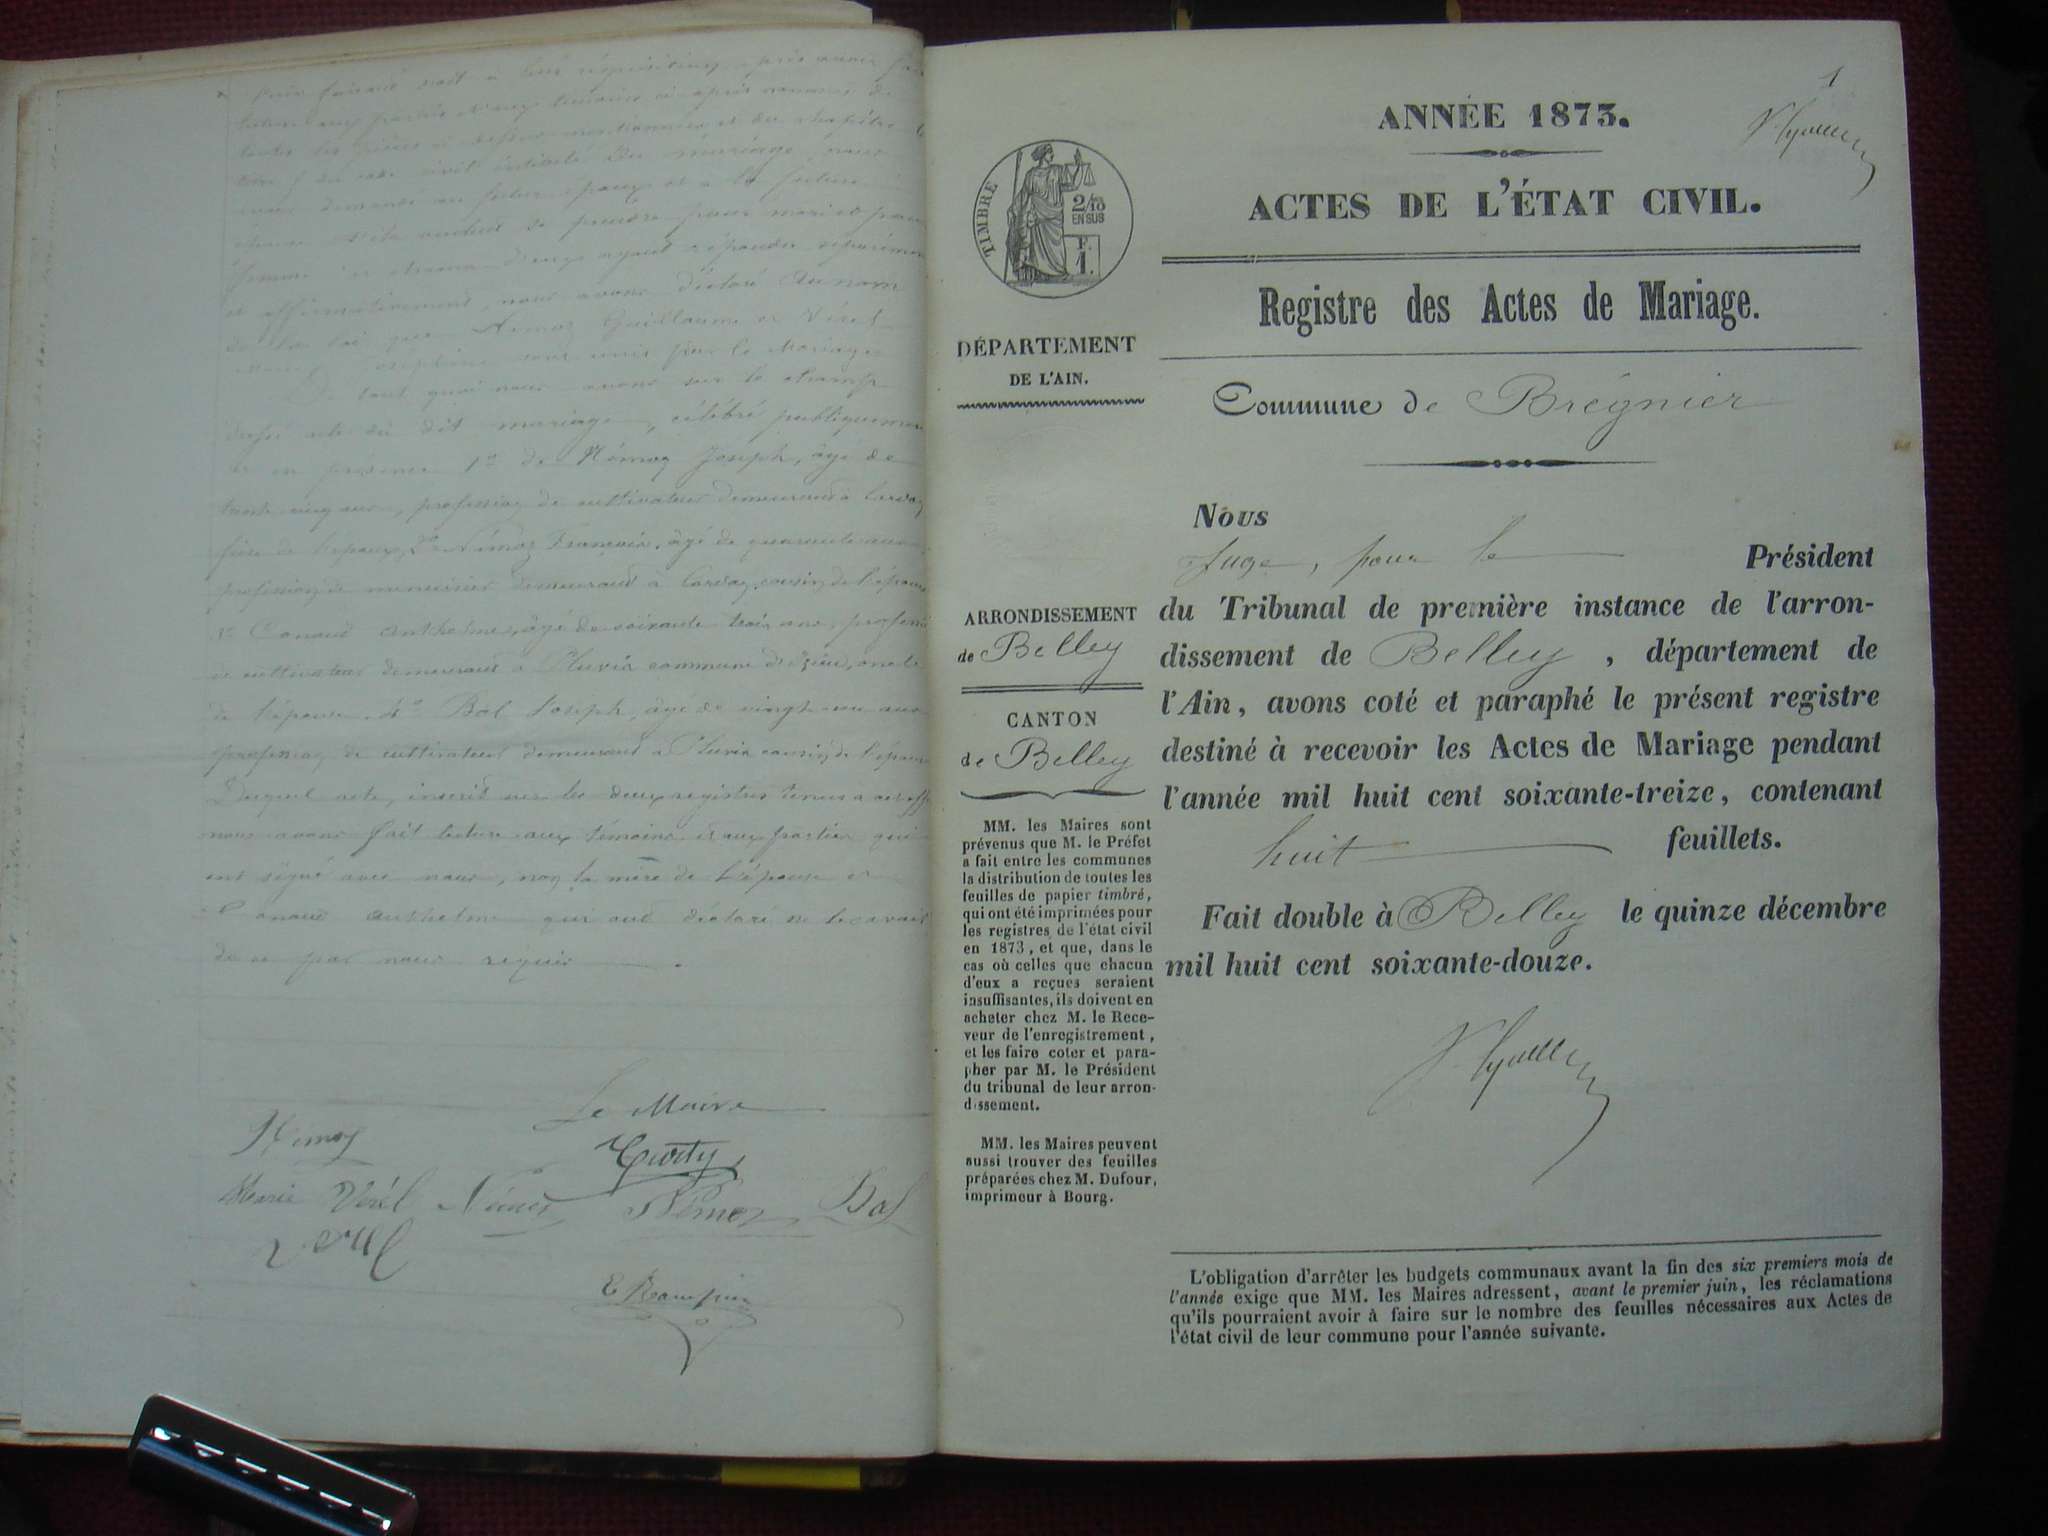 faisant droit à leur réquisition, après avoir
lecture aux parties et aux témoins ci-après nommés de
toutes les pièces ci-dessus mentionnées et du chapitre
du code civil intitulé Du mariage, nous
avons demandé au futur époux et à la future
épouse s'ils veulent se prendre pour mari et pour
femme et chacun d'eux ayant répondu séparément
et affirmativement, nous avons déclaré au nom
de la loi que Némoz Guillaume et Vérel
Joséphine sont unis par le Mariage
De tout quoi nous avons sur le champ
dressé acte du dit mariage, célébré publiquement
et en présence 1º de Némoz Joseph, âgé de
trente cinq ans, profession de cultivateur demeurant à
frère de l'époux, 2º Némoz François, âgé de quarante
profession de menuisier demeurant à cousin de l'époux
3º Canaud Anthelme, âgé de soixante trois ans, profession
de cultivateur demeurant à Pluvis commune d'Izieu, oncle
de l'épouse. 4º Bal Joseph, âgé de vingt un ans
profession de cultivateur demeurant à Pluvis cousin de l'épouse
Duquel acte, inscrit sur les deux registres tenus à cet effet
nous avons fait lecture aux témoins et aux parties qui
ont signé avec nous, non la mère de l'épouse et
Canaud Anthelme qui ont déclaré ne le savoir
de ce par nous requis.
Le Maire
Némoz
Marie Vérel Némoz Némoz Bal
Vérel
1
ANNÉE 1873.
ACTES DE L'ÉTAT CIVIL.
Registre des Actes de Mariage.
TIMBRE
2/10
EN SUS
F.
1.
DÉPARTEMENT
DE L'AIN.
Commune de Brégnier
ARRONDISSEMENT
de Belley
CANTON
de Belley
MM. les Maires sont
prévenus que M. le Préfet
a fait entre les communes
la distribution de toutes les
feuilles de papier timbré,
qui ont été imprimées pour
les registres de l'état civil
en 1873, et que, dans le
cas où celles que chacun
d'eux a reçues seraient
insuffisantes, ils doivent en
acheter chez M. le Rece-
veur de l'enregistrement,
et les faire coter et para-
pher par M. le Président
du tribunal de leur arron-
dissement.
MM. les Maires peuvent
aussi trouver des feuilles
préparées chez M. Dufour,
imprimeur à Bourg.
Nous
Juge, pour le Président
du Tribunal de première instance de l'arron-
dissement de Belley, département de
l'Ain, avons coté et paraphé le présent registre
destiné à recevoir les Actes de Mariage pendant
l'année mil huit cent soixante-treize, contenant
huit feuillets.
Fait double à Belley le quinze décembre
mil huit cent soixante-douze.
L'obligation d'arrêter les budgets communaux avant la fin des six premiers mois de
l'année exige que MM. les Maires adressent, avant le premier juin, les réclamations
qu'ils pourraient avoir à faire sur le nombre des feuilles nécessaires aux Actes de
l'état civil de leur commune pour l'année suivante.